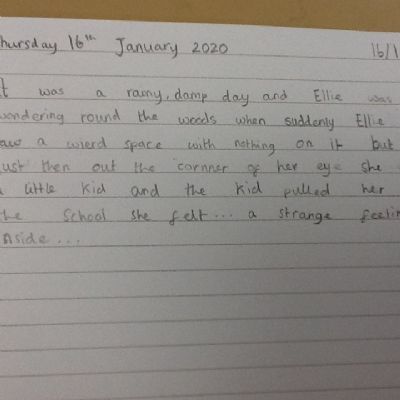 Thursday 16th January 2020 16/1
It was a rainy, damp day and Ellie was
wondering round the woods when suddenly Ellie
saw a wierd space with nothing on it but
just then out the cornner of her eye she
a little kid and the kid pulled her
the School she felt... a strange feelin
Aside...